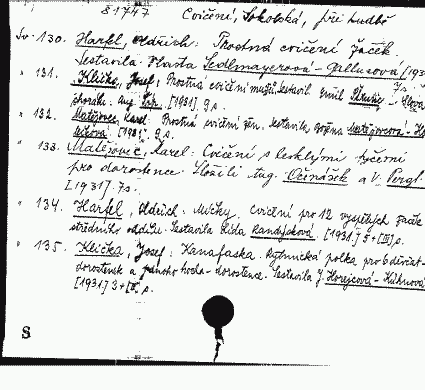 81747 Cvičení, Sokolská, při hudbě
Sv. 130. Harfel, Oldřich: Prostná cvičení žaček.
Sestavila Vlasta Sedlmayerová-Gallusová [193
" 131. Klička, Josef, Prostná cvičení mužů. Sestavil Emil
Aug. [1931] 9 s.
" 132. Matějovec, Karel. Prostná cvičení žen. Sestavila Božena Matějovcová-
[1931]. 9 s.
" 133. Matějovič, Karel: Cvičení s lesklými tyčemi
pro dorostence. Složili Aug. Očenášek a V. Pergl.
[1931] 7 s.
" 134. Harfel, Oldřich: Míčky. Cvičení pro 12 vyspělejších žaček
středního oddílu. Sestavila [1931] 5+[III] s.
" 135. Klička, Josef: Kanafaska. Rytmická polka pro 6 děvčat-
dorostenek a jednoho hocha-dorostence. Sestavila J. Horejcová-Kühnová
[1931] 3+[II] s.
S